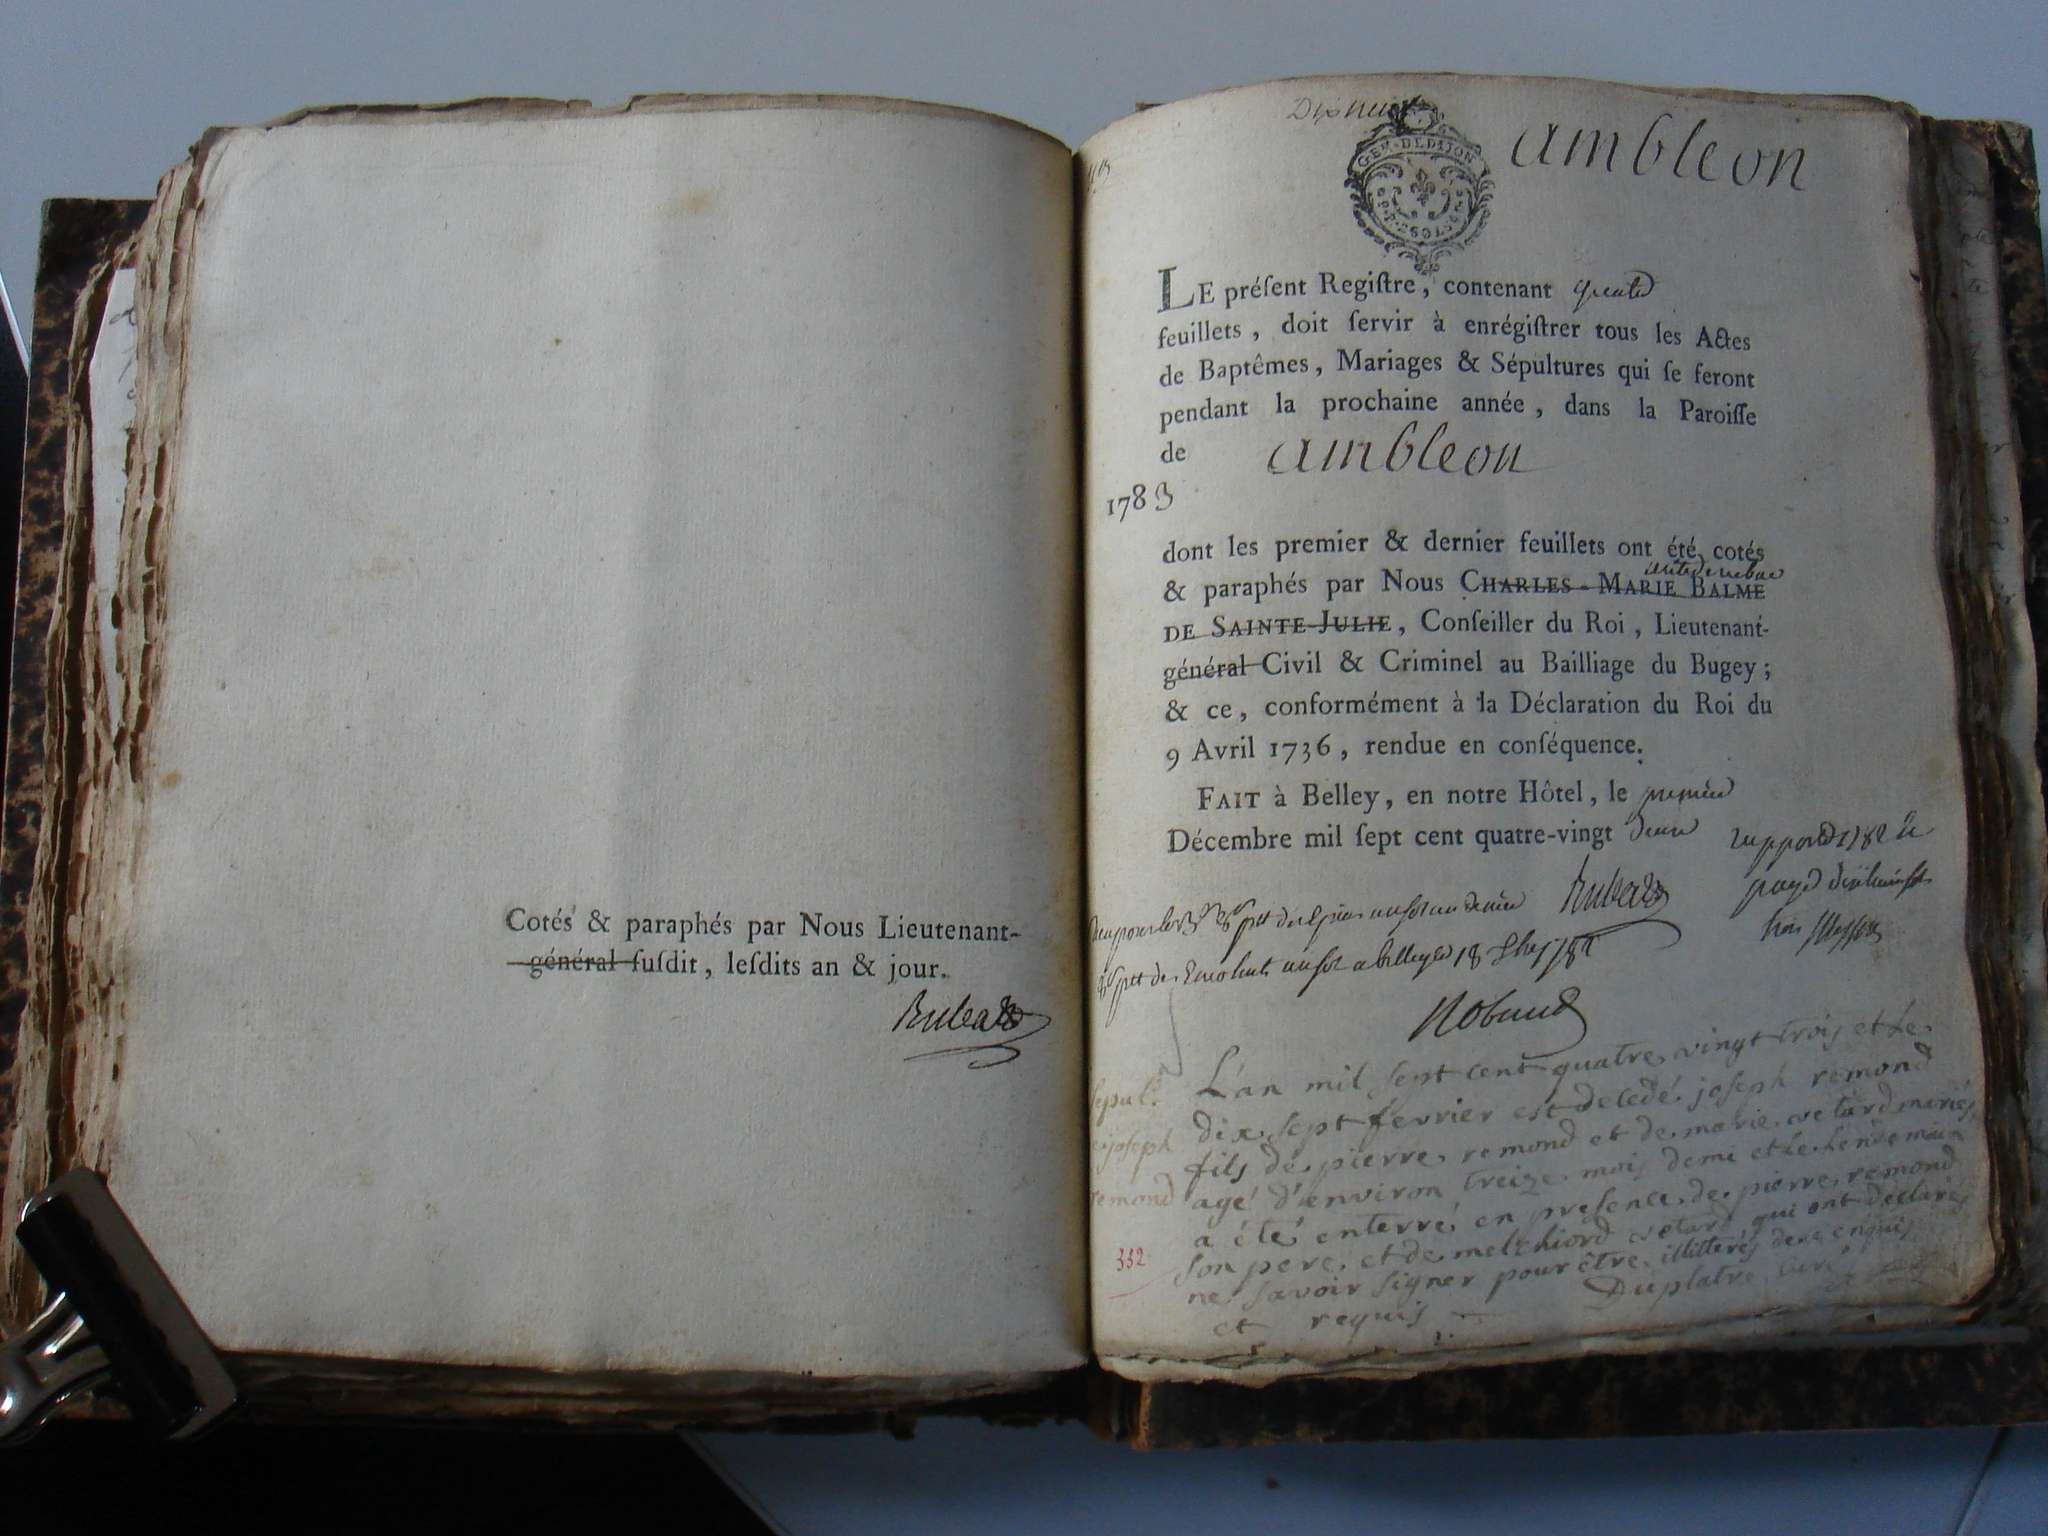 Cotés & paraphés par Nous Lieutenant-
général ſuſdit, leſdits an & jour.
GEN. DE DIJON
ambleon
LE préſent Regiſtre, contenant quatre
feuillets, doit ſervir à enrégiſtrer tous les Actes
de Baptêmes, Mariages & Sépultures qui ſe feront
pendant la prochaine année, dans la Paroiſſe
de ambleon
1783
dont les premier & dernier feuillets ont été cotés
& paraphés par Nous CHARLES-MARIE BALME
DE SAINTE-JULIE, Conſeiller du Roi, Lieutenant-
général Civil & Criminel au Bailliage du Bugey;
& ce, conformément à la Déclaration du Roi du
9 Avril 1736, rendue en conſéquence.
FAIT à Belley, en notre Hôtel, le premier
Décembre mil ſept cent quatre-vingt deux
sepul.
joseph
remond
L'an mil sept cent quatre vingt trois et le
dix sept fevrier est decedé joseph remond
fils de pierre remond et de marie mariés
agé d'environ treize mois demi et le lendemain
a été enterré en presence de pierre remond
son pere et de melchiord qui ont declarés
ne savoir signer pour être illitterés de ce enquis
et requis Duplatre curé
332